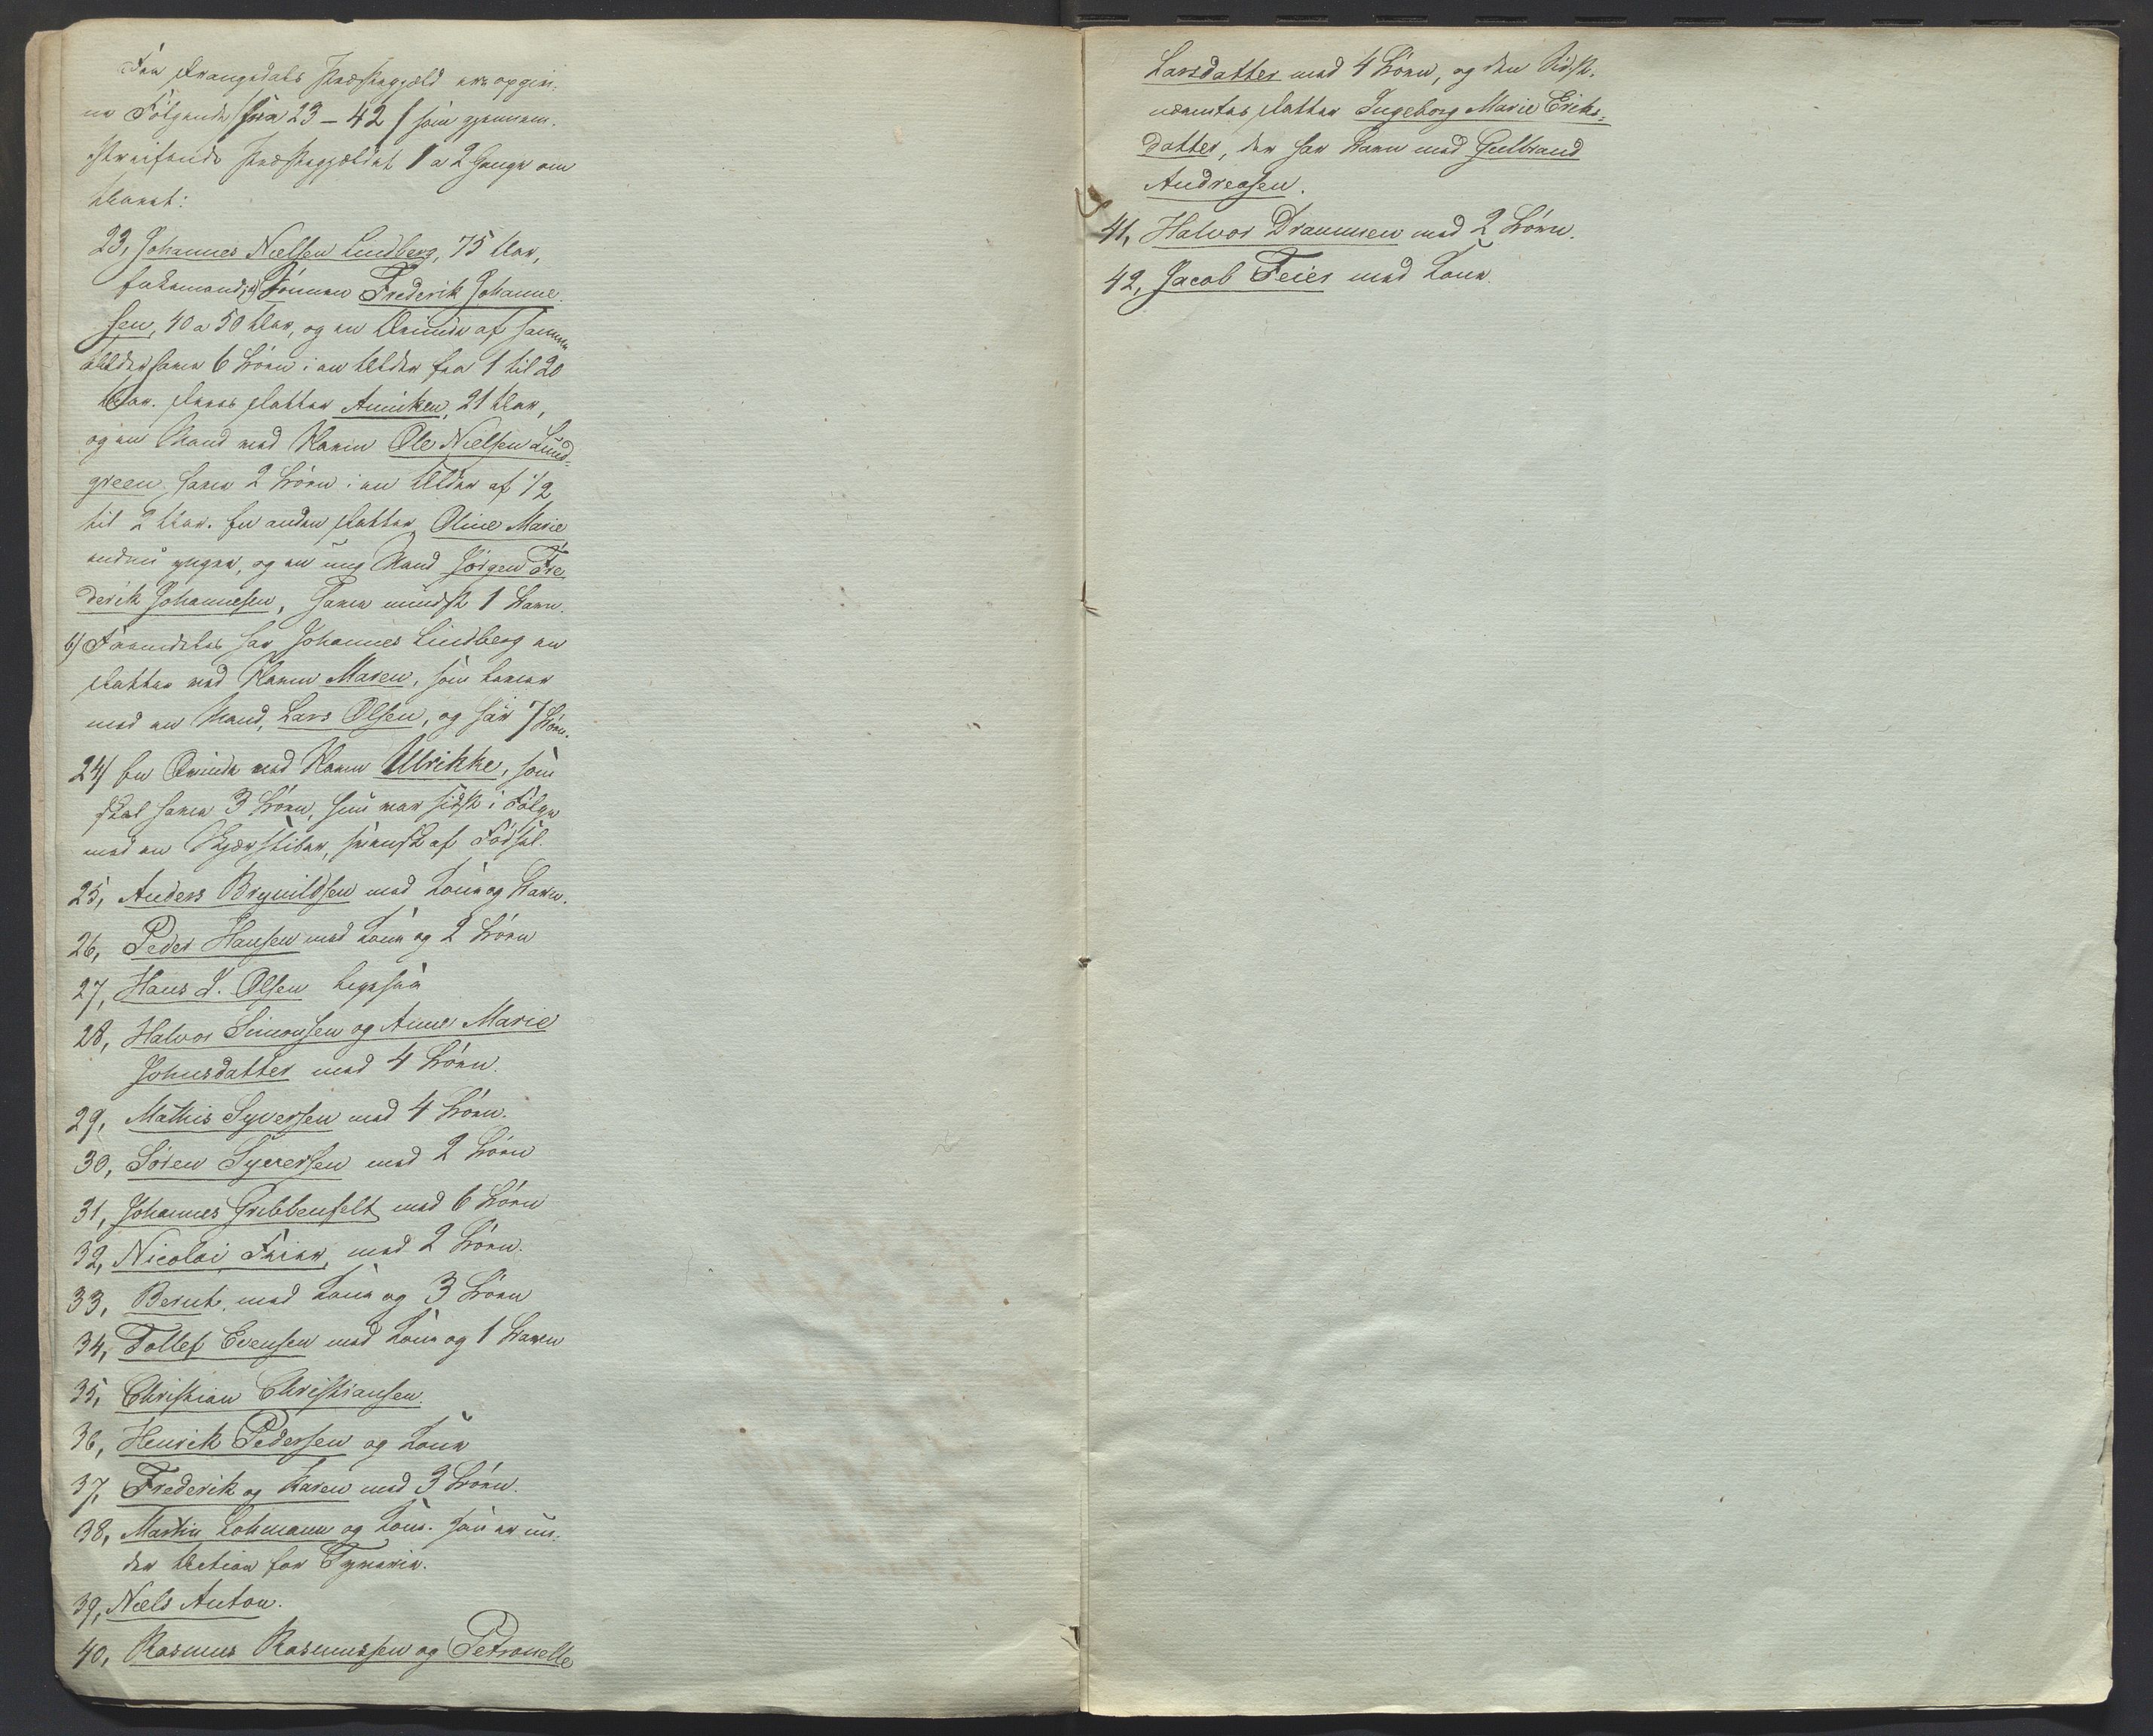 Fra Drangedals Præstegjæld ere opgiv-
ne Følgende (fra 23 – 42) som gjennem-
streifende Præstegjældet 1 a 2 Gange om
Aaret:
23, Johannes Nielsen Lindberg, 75 Aar,
Enkemand; a) Sønnen Frederik Johanne-
sen, 40 a 50 Aar, og en Kvinde af samme
Alder have 6 Børn i en Alder fra 1 til 20
Aar. Deres Datter Anniken, 21 Aar,
og en Mand ved Navn Ole Nielsen Lund-
green have 2 Børn i en Alder af 1/2
til 2 Aar. En anden Datter Oline Marie
endnu yngre, og en ung Mand Jørgen Fre
derik Johannesen, have mindst 1 Barn.
b) Fremdeles har Johannes Lindberg en
Datter ved Navn Maren, som lever
med en Mand, Lars Olsen, og har 7 Børn.
24) En Qvinde ved Navn Ulrikke, som
skal have 3 Børn, hun var sidst i Følge
med en Skjærsliber, svensk af Fødsel.
25, Anders Brynildsen med Kone og Barn.
26, Peder Hansen med Kone og 2 Børn
27, Hans L. Olsen ligesaa
28, Halvor Simonsen og Anne Marie
Johnsdatter med 4 Børn.
29, Mathis Syversen med 4 Børn.
30, Søren Syversen med 2 Børn
31, Johannes Gribbenfelt med 6 Børn
32, Nicolai Feier, med 2 Børn.
33, Bernt, med Kone og 3 Børn
34, Tollef Evensen med Kone og 1 Barn
35, Christian Christiansen.
36, Henrik Pedersen og Kone
37, Frederik og Karen med 3 Børn.
38, Martin Lohmann og Kone. han er un-
der Action for Tyverie.
39, Niels Anton.
40, Rasmus Rasmussen og Petronelle
Larsdatter med 4 Børn, og den Sidst-
nævntes Datter Ingeborg Marie Eriks-
datter, der har Barn med Gulbrand
Andreasen.
41, Halvor Drammen med 2 Børn.
42, Jacob Feier med Kone.